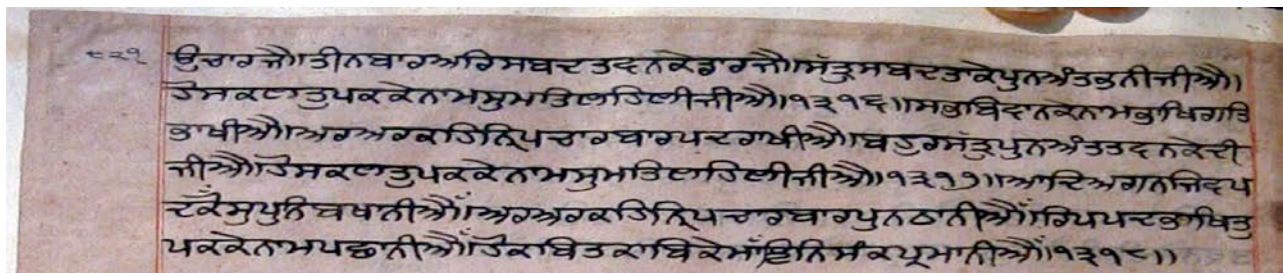 ਉਚਾਰਜੈ॥ਤੀਨਬਾਰਅਰਿਸਬਦਤਵਨਕੇਡਾਰਜੈ॥ਸੱਤ੍ਰੁਸਬਦਤਾਕੇਪੁਨਅੰਤਭਨੀਜੀਐ॥
ਹੋਸਕਲਤੁਪਕਕੇਨਾਮਸੁਮਤਿਲਹਿਲੀਜੀਐ॥੧੩੧੬॥ਸਭਬਿਦਾਨਕੇਨਾਮਭਾਖਿਗਤਿ
ਭਾਖੀਐ॥ਅਰਅਰਕਹਿਨ੍ਰਿਪਚਾਰਬਾਰਪਦਰਾਖੀਐ॥ਬਹੁਰਸੱਤ੍ਰੁਪੁਨਅੰਤਤਵਨਕੇਦੀ
ਜੀਐ॥ਹੋਸਕਲਤੁਪਕਕੇਨਾਮਸੁਮਤਿਲਹਿਲੀਜੀਐ॥੧੩੧੭॥ਆਦਿਅਗਨਜਿਵਪ
ਦਕੈਂਸੁਪੁਨਿਬਖਾਨੀਐਂ॥ਅਰਅਰਕਹਿਨ੍ਰਿਪਚਾਰਬਾਰਪੁਨਠਾਨੀਐਂ॥ਰਿਪਪਦਭਾਖਿਤੁ
ਪਕਕੇਨਾਮਪਛਾਨੀਐਂ॥ਹੋਕਬਿਤਕਾਬਿਕੇਮਾਂਝਿਨਿਸੰਕਪ੍ਰਮਾਨੀਐਂ॥੧੩੧੮॥